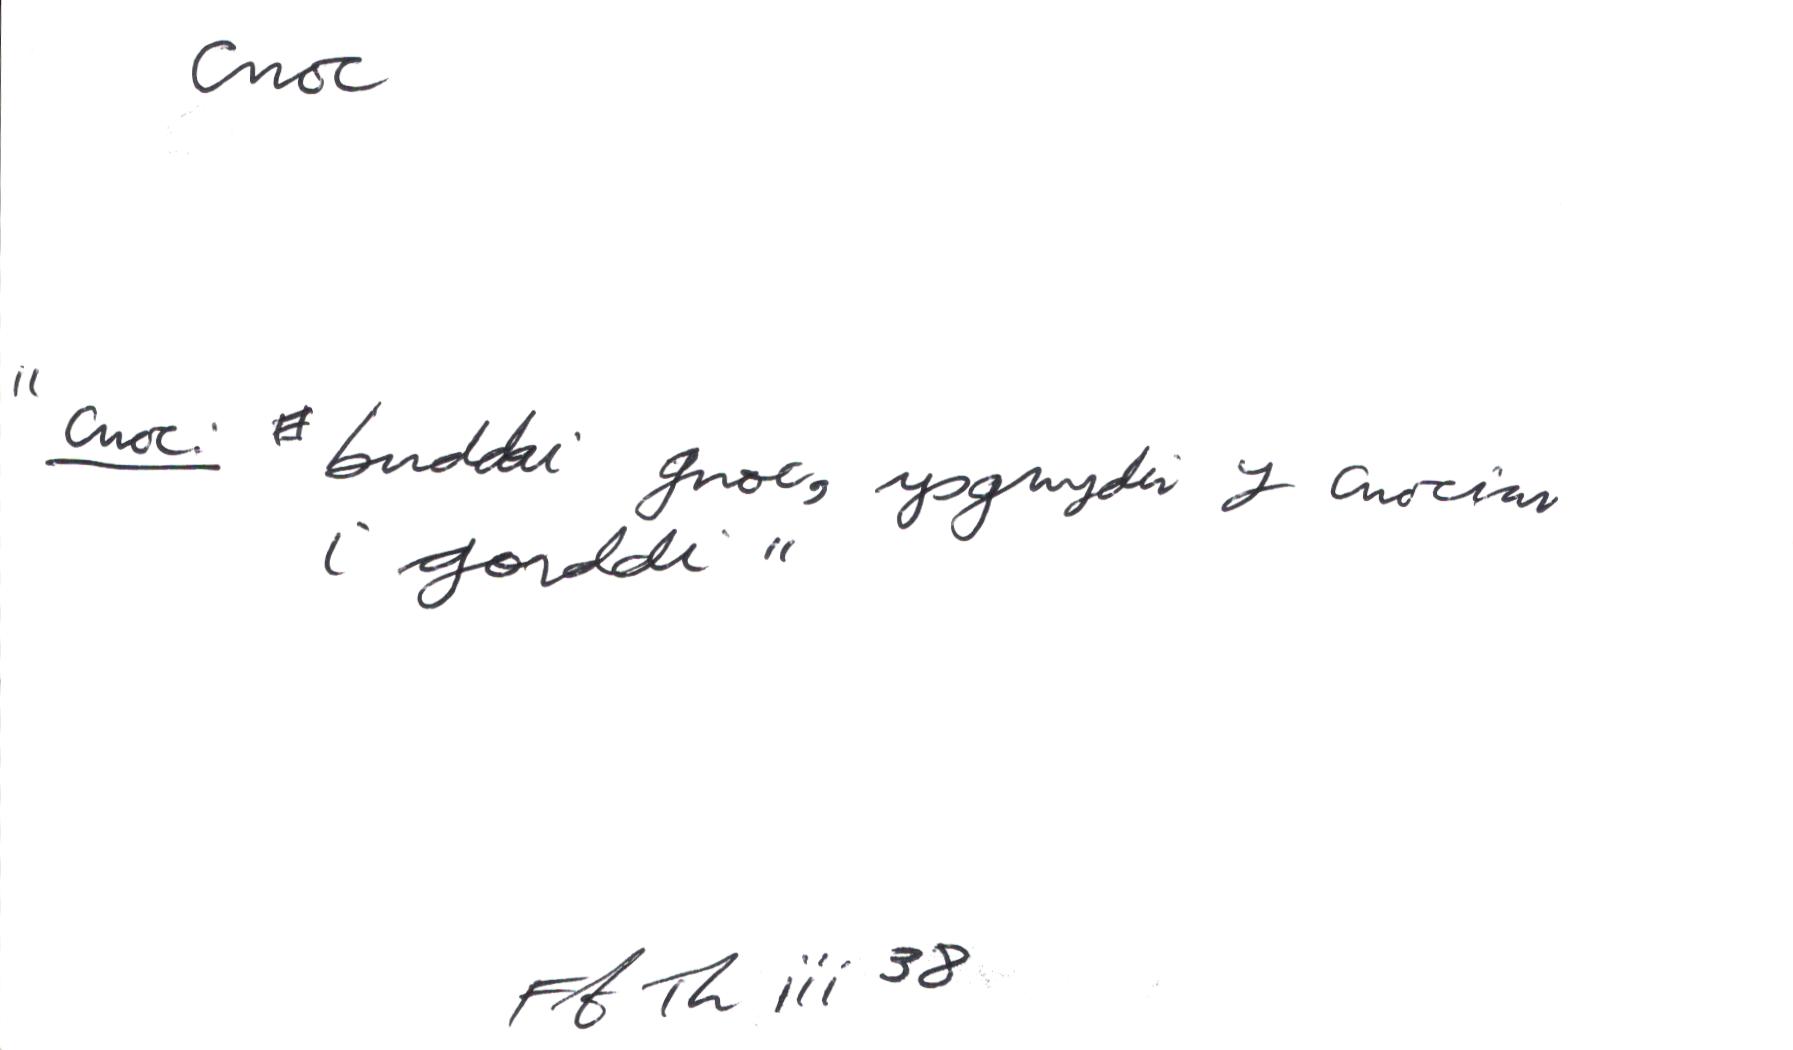 Cnoc
"cnoc: buddai gnoc, ysgwydir y cnocian
i gorddi"
Ff Th iii 38